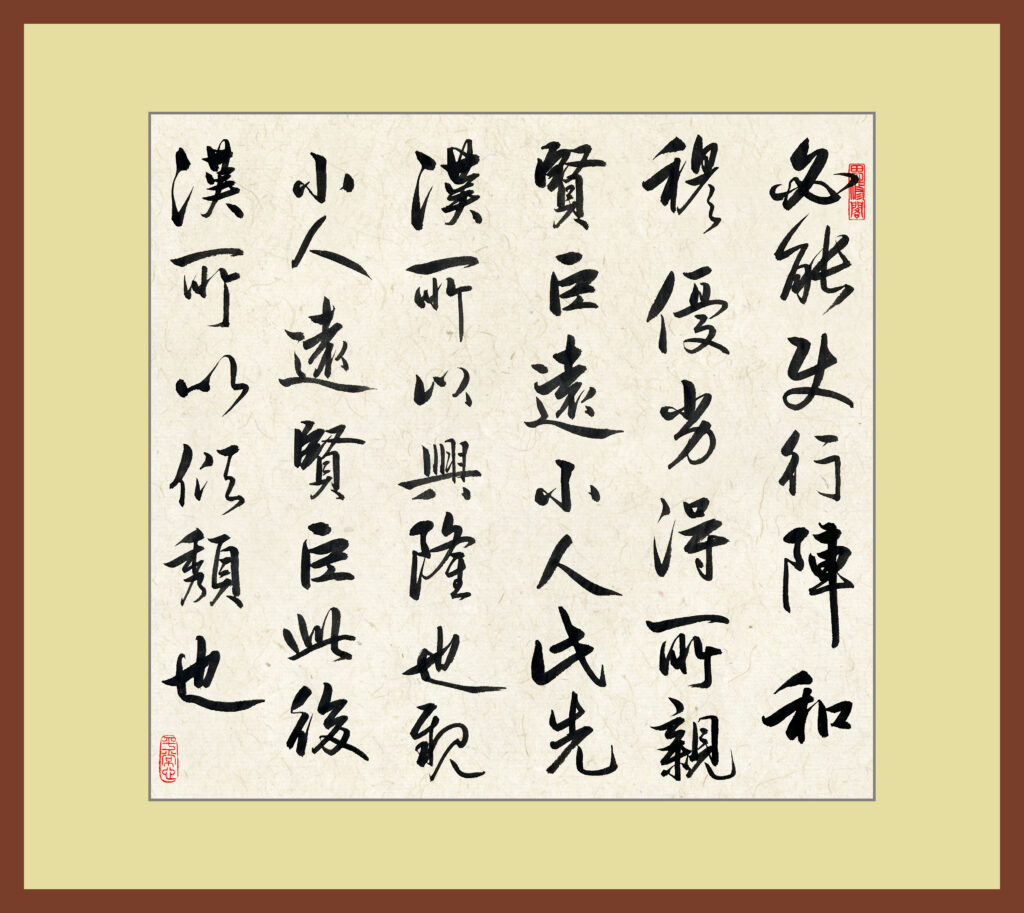 必能使行陣和
穆優劣得所親
賢臣遠小人此先
漢所以興隆也親
小人遠賢臣此後
漢所以傾頹也
平常心